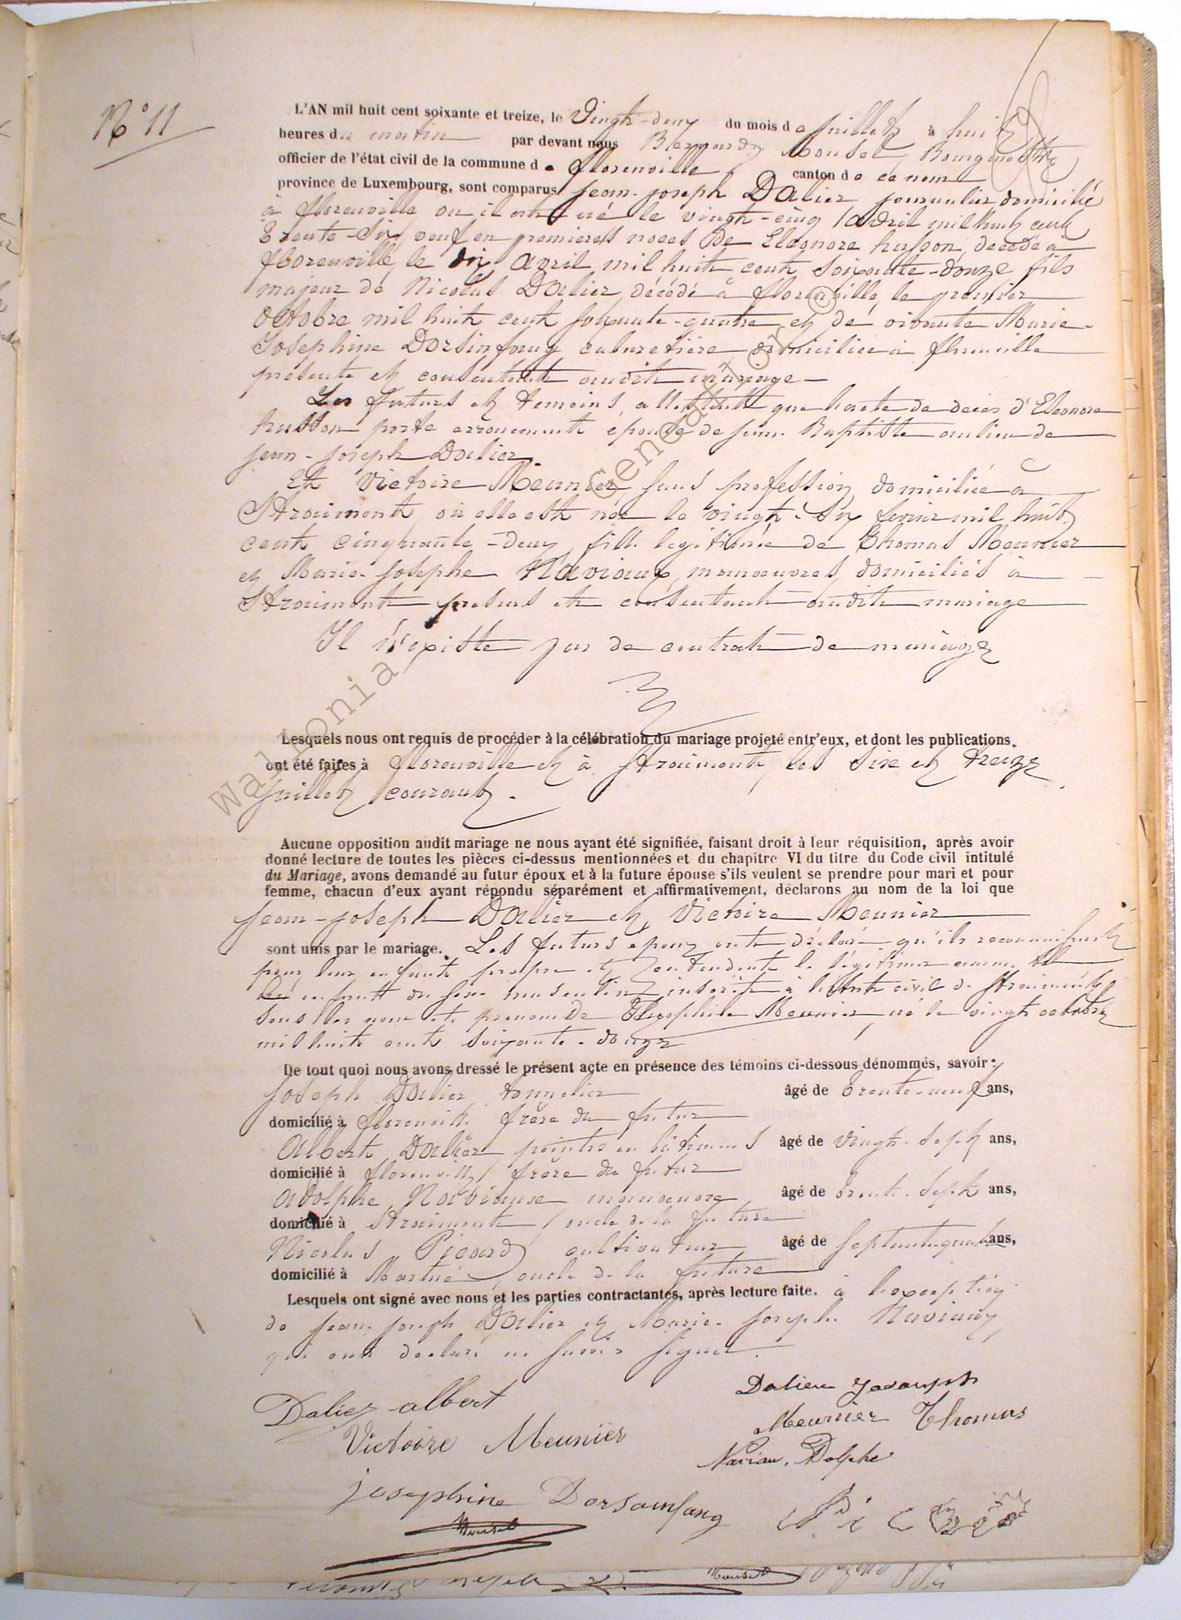 N° 11
L'AN mil huit cent soixante et treize, le Vingt-deux du mois de Juillet à huit
heures du matin par devant nous Bernard Mousel, Bourgmestre
officier de l'état civil de la commune de Florenville, canton de ce nom
province de Luxembourg, sont comparus Jean-Joseph Dalier journalier domicilié
à Florenville où il est né le vingt-cinq Avril mil huit cent
trente-six veuf en premieres noces de Eléonore husson, décédé à
Florenville le dix Avril mil huit cent soixante-douze fils
majeur de Nicolas Dalier, décédé à Florenville, le premier
octobre mil huit cent soixante-quatre et de vivante Marie-
Josephine cabaretière domiciliée à Florenville
présente et consentant audit mariage-
Les futurs et temoins attestent que l'acte de deces d'Eleonore
husson porte erronement épouse de Jean-Baptiste au lieu de
Jean-Joseph Dalier.
Et Victoire Meunier sans profession domiciliée à
Straimont, où elle est née le vingt-six fevrier mil huit
cent cinquante-deux, fille légitimée de Thomas Meunier
et Marie-Josephe Naviaux, manoeuvres, domiciliés à
Straimont présens et consentant audit mariage
Il n'existe pas de contrat de mariage
Lesquels nous ont requis de procéder à la célébration du mariage projeté entr'eux, et dont les publications
ont été faites à Florenville et à Straimont, les Sixe et treize
Juillet courant.
Aucune opposition audit mariage ne nous ayant été signifiée, faisant droit à leur réquisition, après avoir
donné lecture de toutes les pièces ci-dessus mentionnées et du chapitre VI du titre du Code civil intitulé
du Mariage, avons demandé au futur époux et à la future épouse s'ils veulent se prendre pour mari et pour
femme, chacun d'eux ayant répondu séparément et affirmativement, déclarons au nom de la loi que
Jean-Joseph Dalier et Victoire Meunier
sont unis par le mariage. Les futurs époux ont déclaré qu'ils reconnaissent
pour leur enfant propre et entendent le légitimer comme tel
enfant du sexe masculin inscrit à l'état civil de Straimont
sous les nom et prenom de Théophile Meunier, né le vingt octobre
mil huit cent soixante-douze
De tout quoi nous avons dressé le présent acte en présence des témoins ci-dessous dénommés, savoir:
Joseph Dalier, tonnelier âgé de trente-neuf ans,
domicilié à Florenville frère du futur
Albert Dalier peintre en bâtiments âgé de vingt-sept ans,
domicilié à Florenville, frère du futur
Adolphe Naviaux manoeuvre âgé de trente-sept ans,
domicilié à Straimont, oncle de la future
Nicolas Picard, cultivateur âgé de septante-quatre ans,
domicilié à Martué, oncle de la future
Lesquels ont signé avec nous et les parties contractantes, après lecture faite. à l'exception
de Jean-Joseph Dalier et Marie-Josephe Naviaux,
qui ont déclaré ne savoir signer.
Daliez albert
Dalier
Victoire Meunier
Meunier Thomas
Naviau. Dolphe
josephine Dorsainfang
Mousel
Mousel
Wallonia Geneanet ©